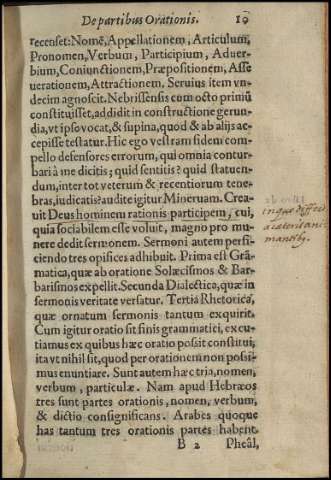 De partibus Orationis. 10
recenset: Nomē, Appellationem, Articulum,
Pronomen, Verbum, Participium, Aduer-
bium, Coniunctionem, Præpositionem, Asse
uerationem, Attractionem. Seruius item vn-
decim agnoscit. Nebrissensis cum octo primũ
constituisset, addidit in constructione gerun-
dia, vt ipso vocat, & supina, quod & ab alijs ac-
cepisse testatur. Hic ego vestram fidem com-
pello defensores errorum, qui omnia contur-
bari à me dicitis; quid sentitis? quid statuen-
dum, inter tot veterum & recentiorum tene-
bras, iudicatis? audite igitur Mineruam. Crea-
uit Deus hominem rationis participem, cui,
quia sociabilem esse voluit, magno pro mu-
nere dedit sermonem. Sermoni autem perfi-
ciendo tres opifices adhibuit. Prima est Grã-
matica, quæ ab oratione Solœcismos & Bar-
barismos expellit. Secunda Dialectica, quæ in
sermonis veritate versatur. Tertia Rhetorica,
quæ ornatum sermonis tantum exquirit.
Cum igitur oratio sit finis grammatici, excu-
tiamus ex quibus hæc oratio possit constitui,
ita vt nihil sit, quod per orationem non possi-
mus enuntiare. Sunt autem hæc tria, nomen,
verbum, particulæ. Nam apud Hebræos
tres sunt partes orationis, nomen, verbum,
& dictio consignificans. Arabes quoque
has tantum tres orationis partes habent.
B 2 Pheâl,
in quo differt
a cæteris ani
mantibꝯ.